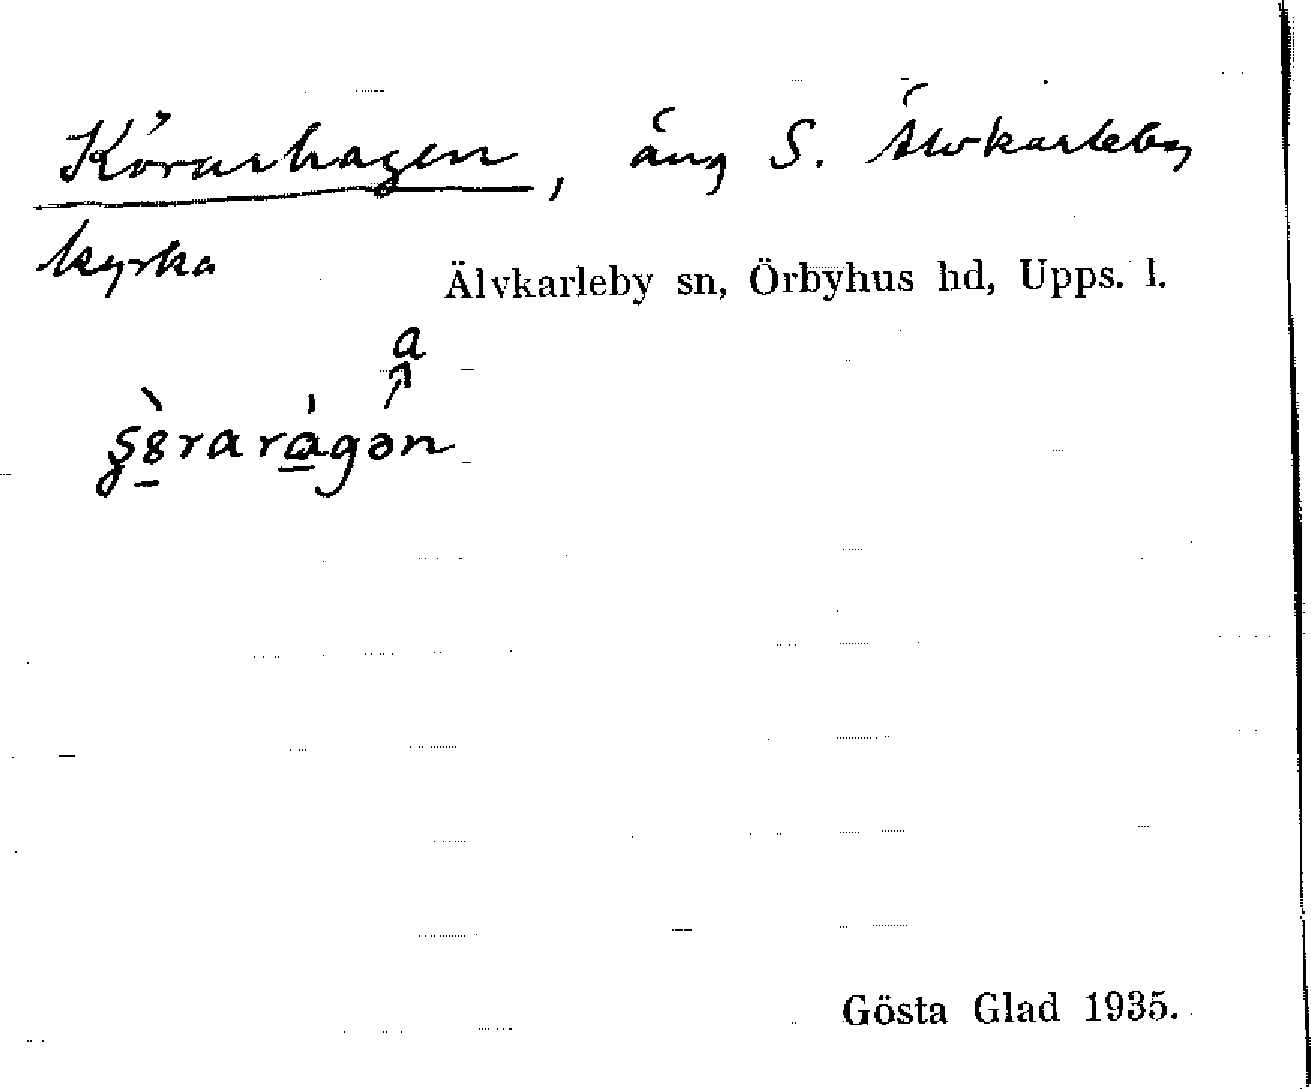 Körarhagen, äng S. Älvkarleby
kyrka
Älvkarleby sn, Örbyhus hd, Upps. l.
a
Gösta Glad 1935.